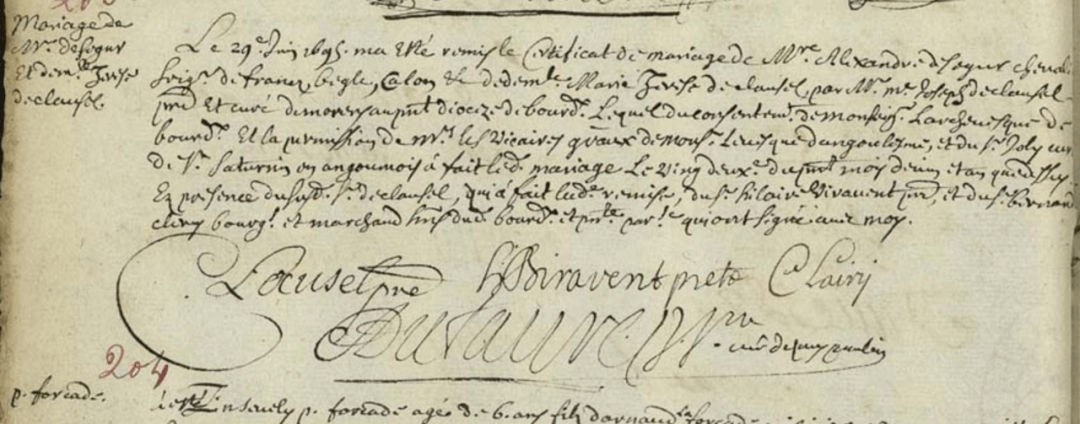 Mariage de
Mr. de Segur
Et dem.le Terese
declausel.
Le 29e. Juin 1695. ma esté remis le Certificat de mariage de Mre. Alexandre de Segur cheval.
seigr. de francq, begle, Calon & de dem.le Marie Terese declausel, par Mr. me Joseph declausel
pre Et curé de au pnt dioceze de bourdx. Lequel du consentemt. de monseigr. Larchevesque de
bourdx. Et la permission de mrs. les Vicaires gnaux de monsr. Levesque dangoulesme, et du sr. Joly curé
de St. Saturnin en angoumois a fait led. mariage Le vingt deuxe. du pnt mois de juin et an que dessus
En presence dud. sr. declausel, qui a fait lad. remise, du sr. hilaire Viravent pre, et du sr. bernard
clery bourg. et marchand de bourdx. et par. qui ont signé avec moy.
Clausel pre HBiravent pretre Clairij
Dufaure pre
curé de puy paulin
204
p. forcade.
Ensevely p. forcade agé de 6. ans fils darnaud forcade